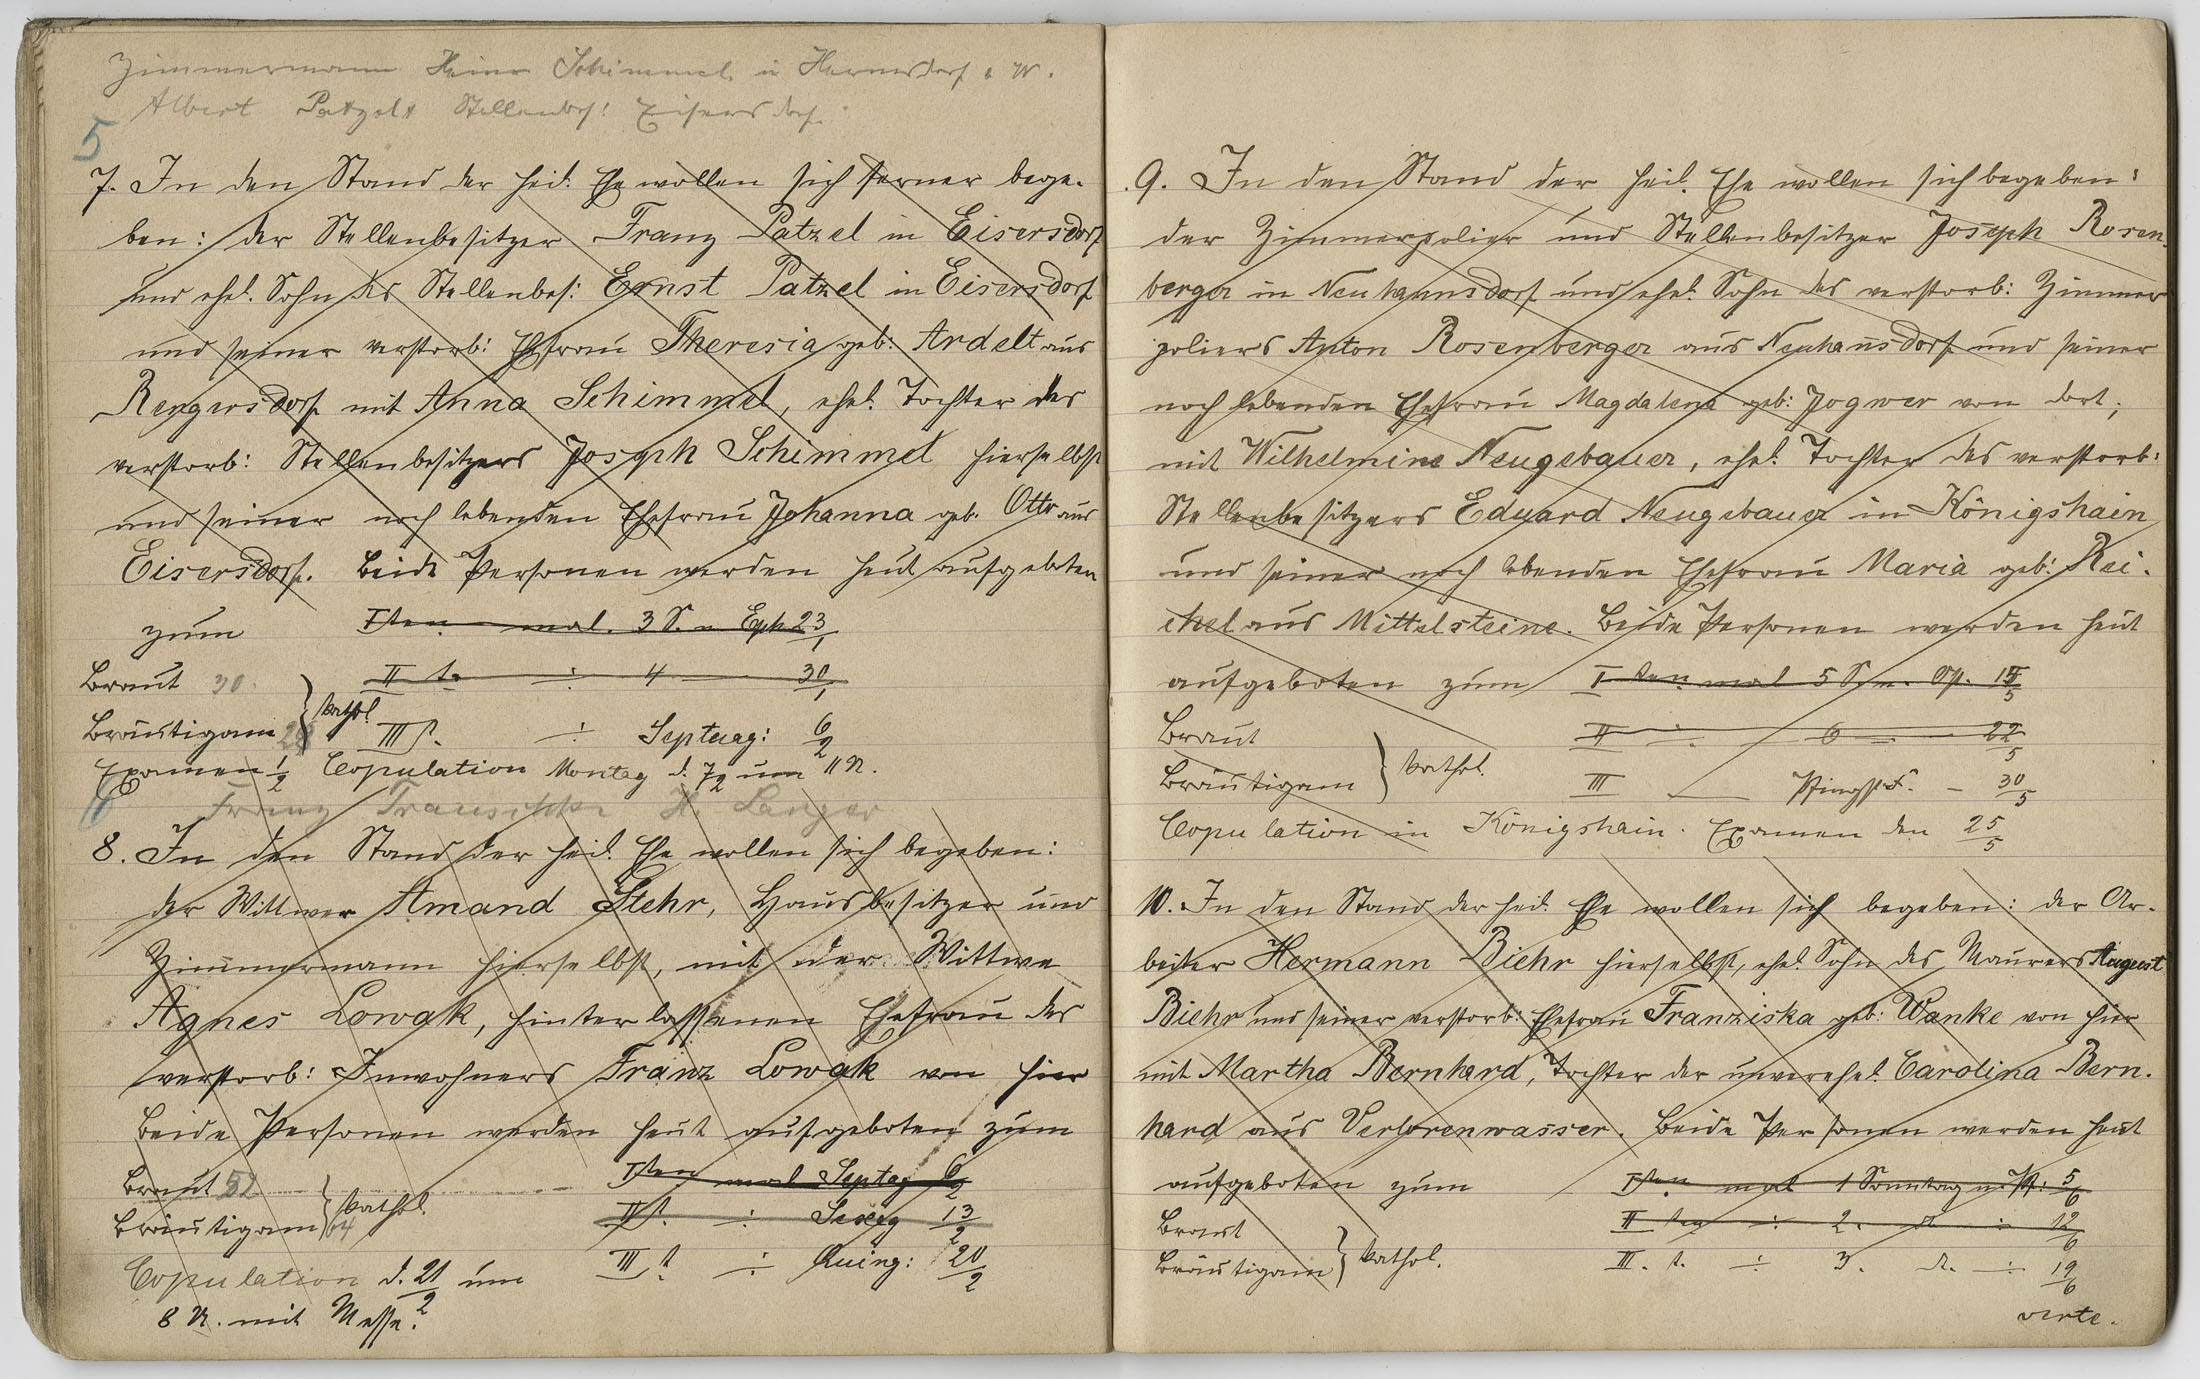 Zimmermann Heinr Schimmel in Hermsdorf
Albert Patzelt Stellenbes: Eisersdorf.
5
7. In den Stand der heil. Ehe wollen sich ferner bege-
ben: der Stellenbesitzer Franz Patzel in Eisersdorf
und ehel. Sohn des Stellenbes: Ernst Patzel in Eisersdorf
und seiner verstorb: Ehefrau Theresia geb: Ardelt aus
Rengersdorf mit Anna Schimmel, ehel. Tochter des
verstorb: Stellenbesitzers Joseph Schimmel hierselbst
und seiner noch lebenden Ehefrau Johanna geb. Otte aus
Eisersdorf. Beide Personen werden heut aufgeboten
zum Iten mal. 3 S. n Eph 23/1
Braut 30. II t. ÷ 4 — 30/1
Bräutigam 28 } kathol. III t. ÷ Septuag: 6/2
Examen 1/2 Copulation Montag d. 7/2 um 11 U.
6 Franz H. Langer
8. In den Stand der heil. Ehe wollen sich begeben:
der Wittwer Amand Stehr, Hausbesitzer und
Zimmermann hierselbst, mit der Wittwe
Agnes Lowak, hinterlassenen Ehefrau des
verstorb: Inwohners Franz Lowak von hier
Beide Personen werden heut aufgeboten zum
Braut 52 Iten mal Septag 6/2
Bräutigam 64 } kathol. II t. ÷ Sexag 13/2
Copulation d. 21/2 um III t ÷ Quing: 20/2
8 U. mit Messe.
9. In den Stand der heil. Ehe wollen sich begeben:
der Zimmerpolier und Stellenbesitzer Joseph Rosen-
berger in Neuhannsdorf und ehel. Sohn des verstorb: Zimmer
poliers Anton Rosenberger aus Neuhansdorf und seiner
noch lebenden Ehefrau Magdalena geb: Jogwer von dort;
mit Wilhelmine Neugebauer, ehel. Tochter des verstorb:
Stellenbesitzers Eduard Neugebauer in Königshain
und seiner noch lebenden Ehefrau Maria geb: Rei-
chel aus Mittelsteine. Beide Personen werden heut
aufgeboten zum I ten mal 5 S. n. Op. 15/5
Braut II ÷ 6 — 22/5
Bräutigam } kathol. III — Pfingstf. – 30/5
Copulation in Königshain. Examen den 25/5
10. In den Stand der heil. Ehe wollen sich begeben: der Ar-
beiter Hermann Biehr hierselbst, ehel. Sohn des Maurers August
Biehr und seiner verstorb: Ehefrau Franziska geb: Wanke von hier
mit Martha Bernhard, Tochter der unverehel. Carolina Bern-
hard aus Verlorenwasser. Beide Personen werden heut
aufgeboten zum Iten mal 1 Sonntag n. Pf: 5/6
Braut II ten ÷ 2. d. ÷ 12/6
Bräutigam } kathol. III. t. ÷ 3. d. ÷ 19/6
verte.